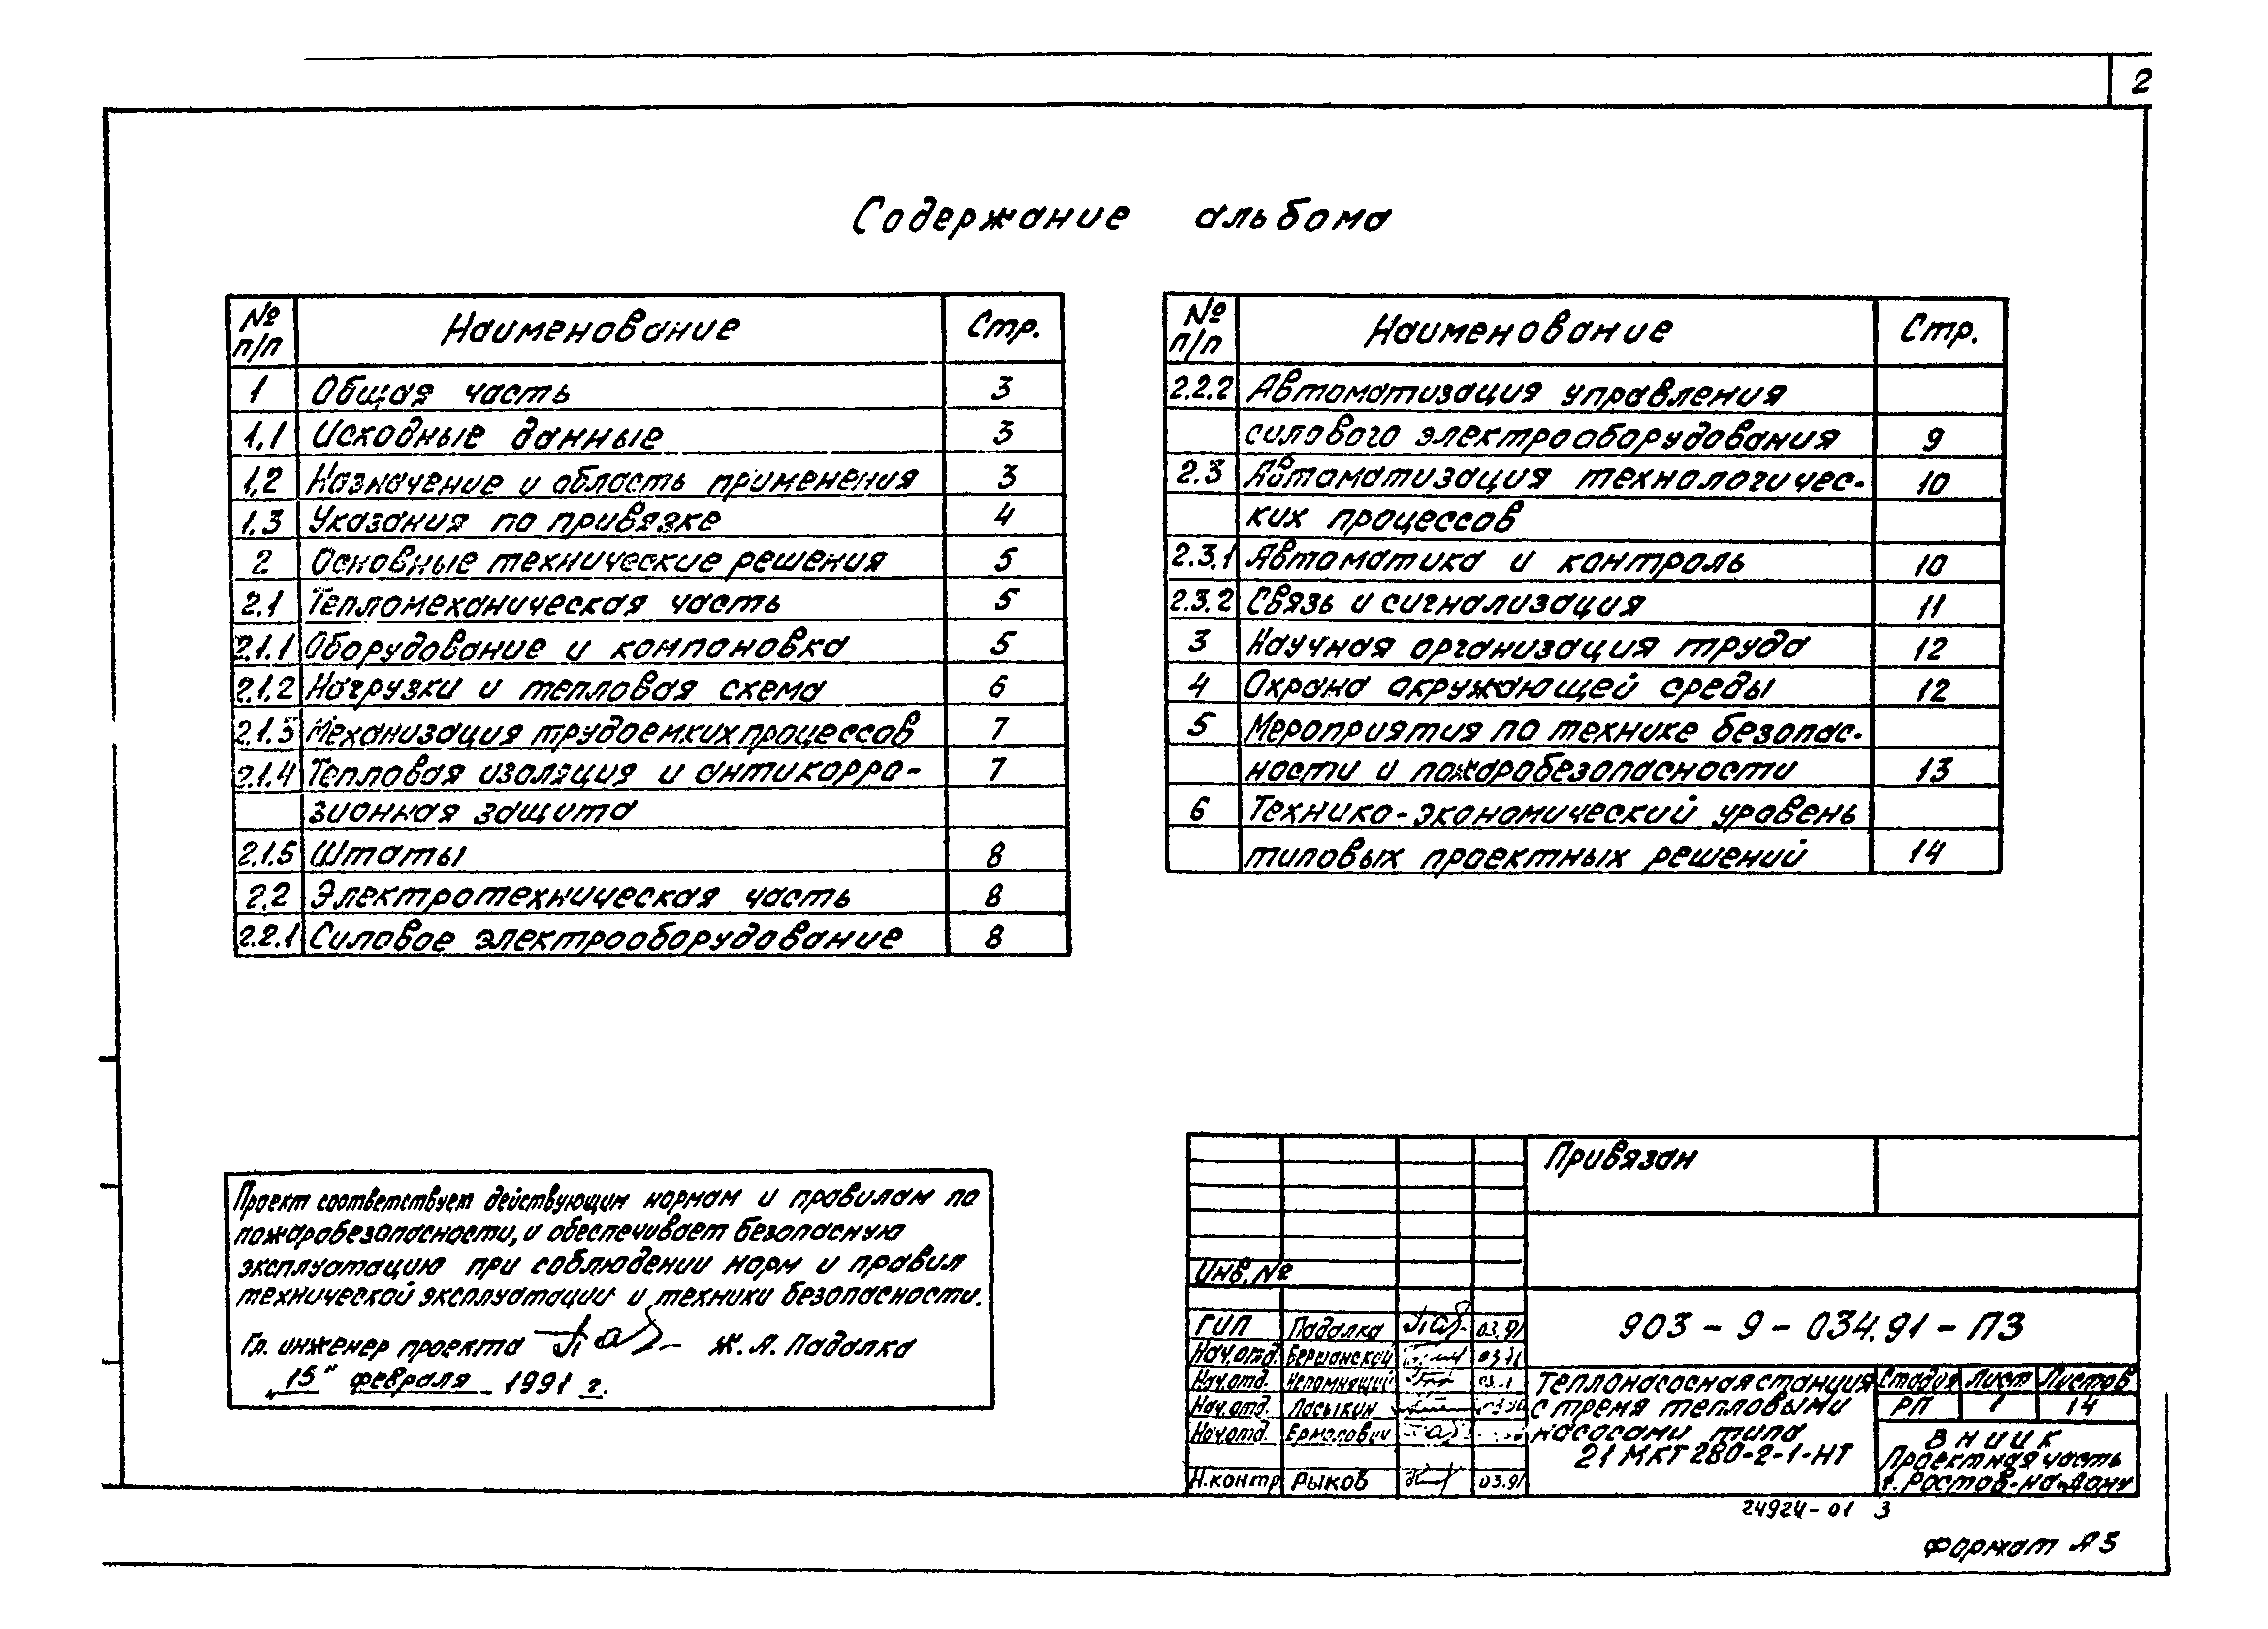 2
Содержание альбома
№ п/п Наименование Стр.
1 Общая часть 3
1.1 Исходные данные 3
1.2 Назначение и область применения 3
1.3 Указания по привязке 4
2 Основные технические решения 5
2.1 Тепломеханическая часть 5
2.1.1 Оборудование и компановка 5
2.1.2 Нагрузки и тепловая схема 6
2.1.3 Механизация трудоемких процессов 7
2.1.4 Тепловая изоляция и антикорро- 7
зионная защита
2.1.5 Штаты 8
2.2 Электротехническая часть 8
2.2.1 Силовое электрооборудование 8
№ п/п Наименование Стр.
2.2.2 Автоматизация управления
силового электрооборудования 9
2.3 Автоматизация технологичес- 10
ких процессов
2.3.1 Автоматика и контроль 10
2.3.2 Связь и сигнализация 11
3 Научная организация труда 12
4 Охрана окружающей среды 12
5 Мероприятия по технике безопас-
ности и пожаробезопасности 13
6 Технико-экономический уровень
типовых проектных решений 14
Проект соответствует действующим нормам и правилам по
пожаробезопасности, и обеспечивает безопасную
эксплуатацию при соблюдении норм и правил
технической эксплуатации и техники безопасности.
Гл. инженер проекта Ж. А. Падалка
„15" февраля 1991 г.
Привязан
Инв. №
903-9-034.91-ПЗ
ГИП Падалка 03.91
Нач.отд. Бершанской
Нач.отд. Непомнящий
Нач.отд. Ласыкин
Нач.отд. Ермолович
Н.контр Рыков 03.91
Теплонасосная станция
с тремя тепловыми
насосами типа
21 МКТ 280-2-1-НТ
Стадия Лист Листов
РП 1 14
ВНИИК
Проектная часть
г. Ростов-на-Дону
24924-01 3
Формат А3